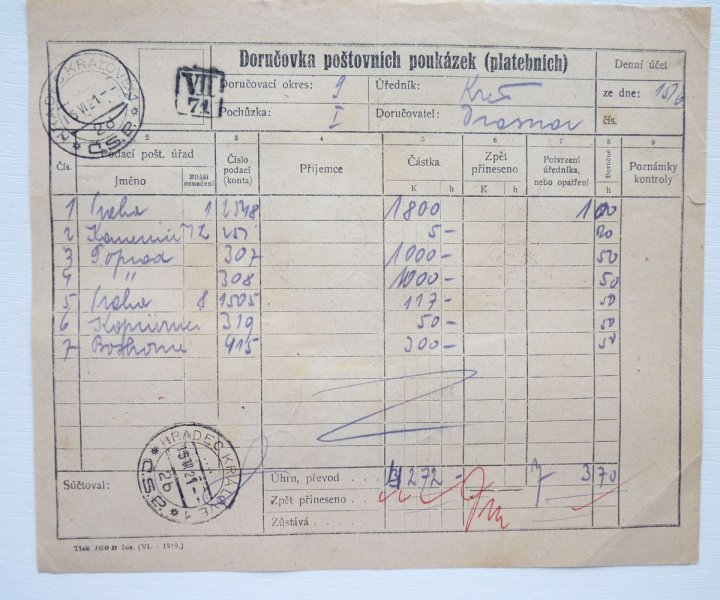 HRADEC KRÁLOVÉ 1
15 VI 21
2b
Č.S.P.
VII
71
Doručovka poštovních poukázek (platebních)
Denní účet
Doručovací okres: 9
Úředník:
ze dne: 15/6
Pochůzka: I
Doručovatel:
čís.
2 3 4 5 6 7 8 9
Čís.
Podací pošt. úřad
Jméno
Bližší označení
Číslo podací (konta)
Příjemce
Částka
K h
Zpět přineseno
K h
Potvrzení úředníka, nebo opatření
Doručné
h
Poznámky kontroly
1 Praha 1 2548 1800 1 00
2 5- 20
3 Poprad 307 1000- 50
4 " 308 1000- 50
5 Praha 8 1505 117- 50
6 Kopřivnice 319 50- 50
7 415 300- 50
HRADEC KRÁLOVÉ 1
15 VI 21
2b
Č.S.P.
Součtoval:
Úhrn, převod 272 - 3 70
Zpět přineseno
Zůstává
Tisk 160 B čes. (VI. - 1919.)